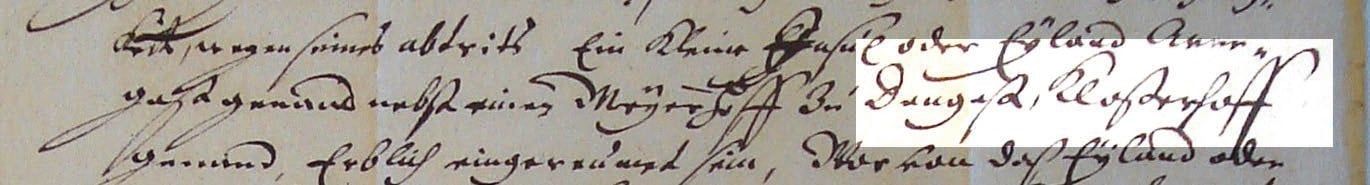 wegen seines abtrits Ein Kleine Insul oder Eÿland Aren-
gast genand nebst einen Meÿerhoff zu Dangast, Klosterhoff
genand, Erblich eingereumet sein, Wor von das Eÿland oder